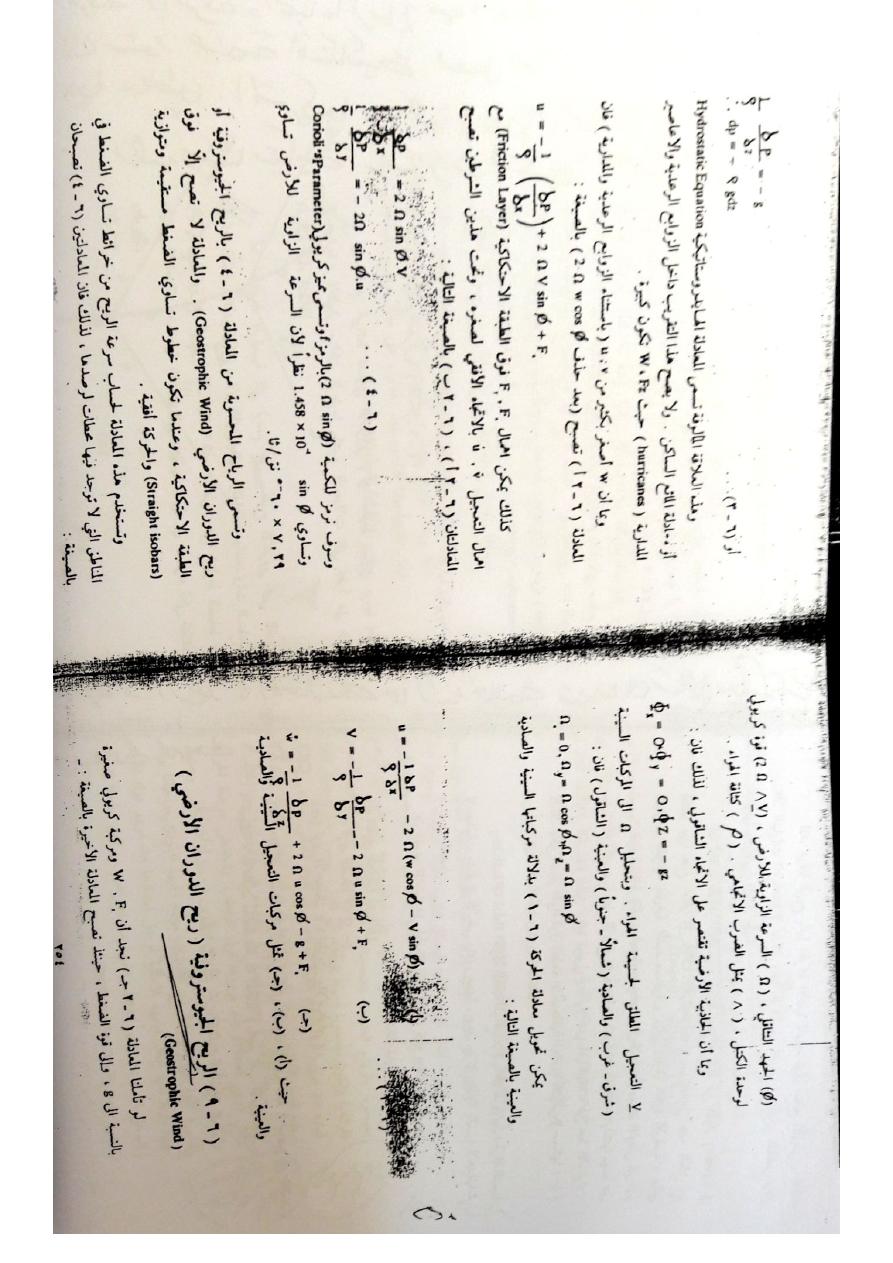 (Ø) الجهد التثاقلي ، (Ω) السرعة الزاوية للارض ، (2 Ω ∧ V) قوة كريولي
لوحدة الكتل ، (∧) تمثل الضرب الاتجاهي . (ρ) كثافة الهواء .
وبما أن الجاذبية الأرضية تقتصر على الاتجاه الشاقولي ، لذلك فان :
ϕx = 0, ϕy = 0, ϕz = - g
V التعجيل المطلق لجسيمة الهواء . وبتحليل Ω الى المركبات السينية
(شرق - غرب) والصادية (شمالاً - جنوباً) والعينية (الشاقول) فان :
Ωx = 0, Ωy = Ω cos Ø, Ωz = Ω sin Ø
يمكن تحويل معادلة الحركة (٦-١) بدلالة مركباتها السينية والصادية
والعينية بالصيغة التالية :
u = - 1/ρ δP/δx - 2 Ω (w cos Ø - V sin Ø) + F
V = - 1/ρ δP/δy - 2 Ω u sin Ø + F. (ب)
ẇ = - 1/ρ δP/δz + 2 Ω u cos Ø - g + F. (جـ)
حيث (أ) ، (ب) ، (جـ) تمثل مركبات التعجيل السينية والصادية
والعينية .
(٦-٩) الريح الجيوستروفية (ريح الدوران الأرضي)
(Geostrophic Wind)
لو تأملنا المعادلة (٦-٢ جـ) نجد أن W , F ومركبة كريولي صغيرة
بالنسبة الى g ، والى قوة الضغط ، حينئذ تصبح المعادلة الأخيرة بالصيغة : -
٢٥٤
1/ρ δP/δz = - g
∴ dp = - ρ gdz
أو (٦-٣) ...
وهذه العلاقة المألوفة تسمى المعادلة الهايدروستاتيكية Hydrostatic Equation
أو معادلة المائع الساكن . ولا يصح هذا التقريب داخل الزوابع الرعدية والاعاصير
المدارية (hurricanes) حيث W ، Fz تكون كبيرة .
وبما أن w أصغر بكثير من u ، v (باستثناء الزوابع الرعدية والمدارية) فان
المعادلة (٦-٢ أ) تصبح (بعد حذف 2 Ω w cos Ø) بالصيغة :
u = - 1/ρ (δP/δx) + 2 Ω V sin Ø + F.
كذلك يمكن اهمال F , F فوق الطبقة الاحتكاكية (Friction Layer) مع
اهمال التعجيل u̇ , v̇ بالاتجاه الافقي لصغره ، وتحت هذين الشرطين تصبح
المعادلتان (٦-٢ أ) ، (٦-٢ ب) بالصيغة التالية :
1/ρ δP/δx = 2 Ω sin Ø.V
1/ρ δP/δy = - 2Ω sin Ø.u
... (٦-٤)
وسوف نرمز للكمية (2 Ω sin Ø) بالرمز f وتسمى مميز كريولي (Corioli's Parameter)
وتساوي 1.458 × 10⁻⁴ sin Ø نظراً لان السرعة الزاوية للأرض تساوي
٧,٢٩ × ١٠⁻⁵ نق/ثا.
وتسمى الرياح المحسوبة من المعادلة (٦-٤) بالريح الجيوستروفية أو
ريح الدوران الأرضي (Geostrophic Wind) . والمعادلة لا تصح إلّا فوق
الطبقة الاحتكاكية ، وعندما تكون خطوط تساوي الضغط مستقيمة ومتوازية
(Straight isobars) والحركة أفقية .
وتستخدم هذه المعادلة لحساب سرعة الريح من خرائط تساوي الضغط في
المناطق التي لا توجد فيها محطات لرصدها ، لذلك فان المعادلتين (٦-٤) تصبحان
بالصيغة :